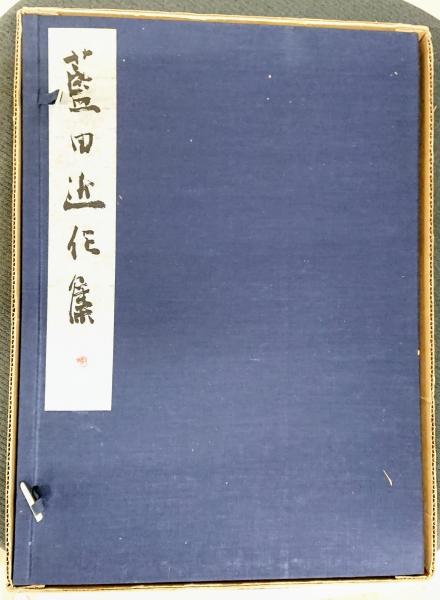 藍田近作集